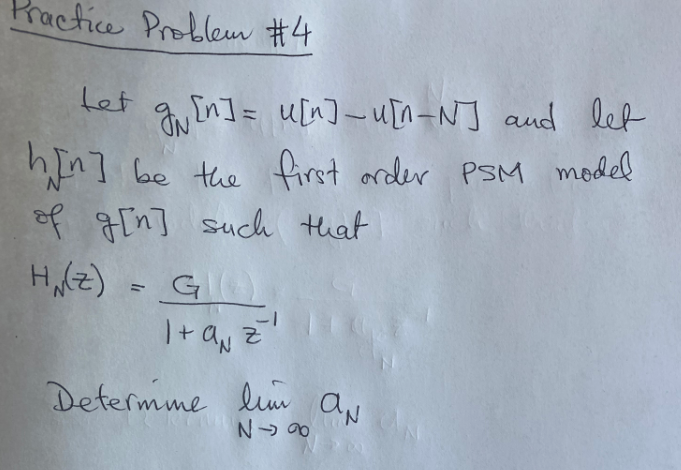 Practice Problem #4
Let g_N[n] = u[n] - u[n-N] and let
h_N[n] be the first order PSM model
of g[n] such that
H_N(z) = G / (1 + a_N z^-1)
Determine lim a_N
N→∞